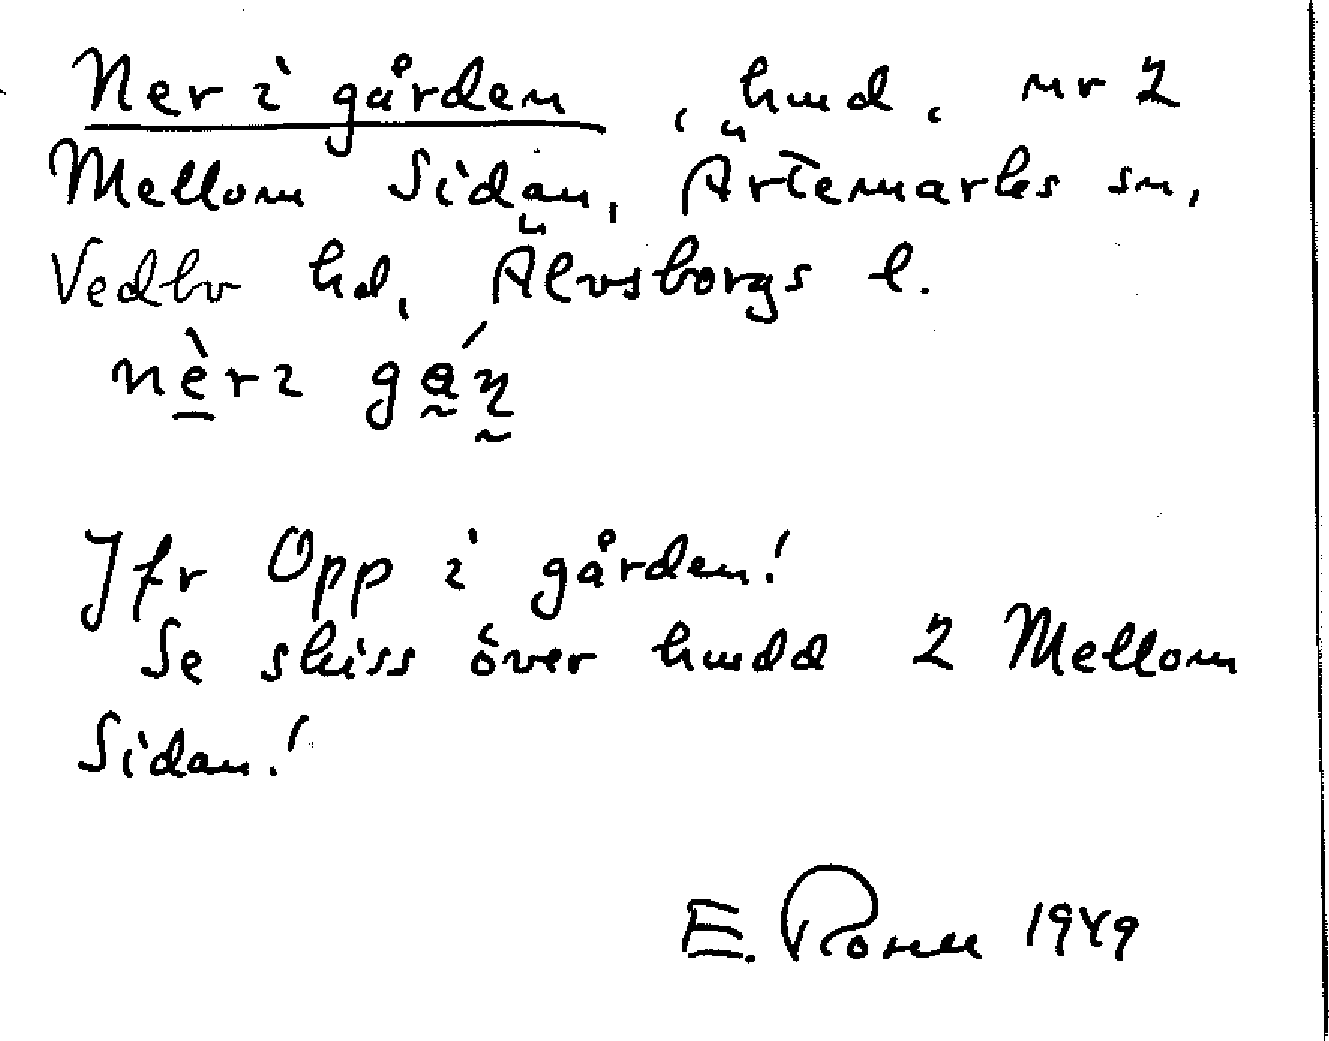 Ner i gården, hmd. nr 2
Mellom Sidan, Ärtemarks sn,
Vedbo hd, Älvsborgs l.
nèr ɩ gán
Jfr Opp i gården!
Se skiss över hmdd 2 Mellom
Sidan!
E. Rosell 1949